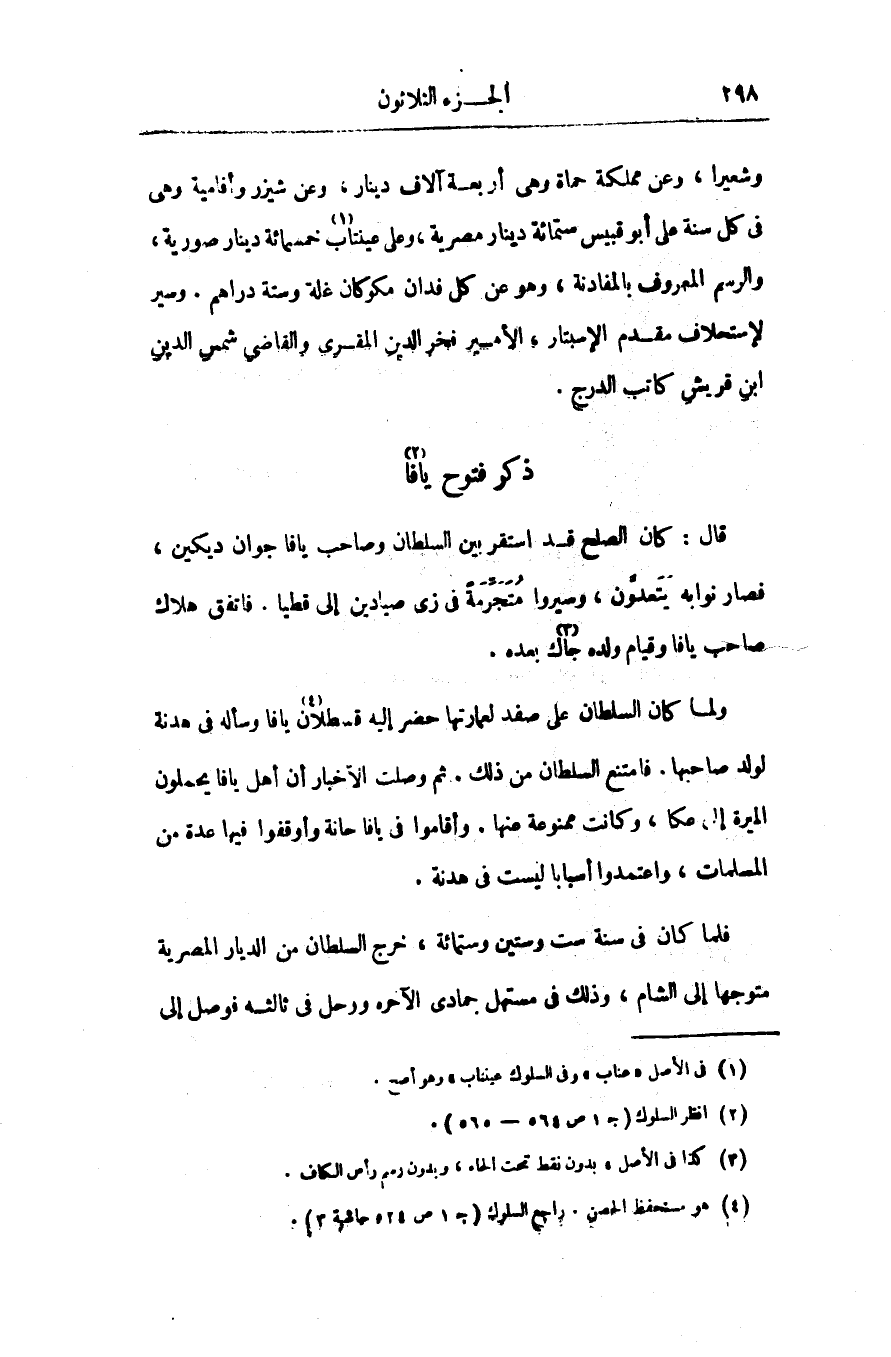 ٢٩٨ الجـزء الثلاثون
وشعيرا ، وعن مملكة حماة وهى أربعـة آلاف دينار ، وعن شيزر وأفامية وهى
فى كل سنة على أبو قبيس ستمائة دينار مصرية ، وعلى عينتاب(١) خمسمائة دينار صورية ،
والرسم المعروف بالمفادنة ، وهو عن كل فدان مكوكان غلة وستة دراهم . وسير
لإستحلاف مقـدم الإسبتار ، الأمـير فخر الدين المقـرى والقاضي شمس الدين
ابن قريش كاتب الدرج .
ذكر فتوح يافا(٢)
قال : كان الصلح قـد استقر بين السلطان وصاحب يافا جوان ديكين ،
فصار نوابه يَتَعدَّون ، وسيروا مُتَجَرَّمَةً فى زى صيادين إلى قطيا . فاتفق هلاك
صاحب يافا وقيام ولده جاك(٣) بعده .
ولمـا كان السلطان على صفد لعمارتها حضر إليه قسطلان(٤) يافا وسأله فى هدنة
لولد صاحبها . فامتنع السلطان من ذلك . ثم وصلت الأخبار أن أهل يافا يحملون
الميرة إلى عكا ، وكانت ممنوعة عنها . وأقاموا فى يافا حانة وأوقفوا فيها عدة من
المسلمات ، واعتمدوا أسبابا ليست فى هدنة .
فلما كان فى سنة ست وستين وستمائة ، خرج السلطان من الديار المصرية
متوجها إلى الشام ، وذلك فى مستهل جمادى الآخره ورحل فى ثالثـه فوصل إلى
(١) فى الأصل « عناب » وفى السلوك عينتاب » وهو أصح .
(٢) انظر السلوك ( جـ ١ ص ٥٦٤ — ٥٦٥ ) .
(٣) كذا فى الأصل ، بدون نقط تحت الحاء ، وبدون رسم رأس الكاف .
(٤) هو مستحفظ الحصن . راجع السلوك ( جـ ١ ص ٥٢٤ حاشية ٣ ) .